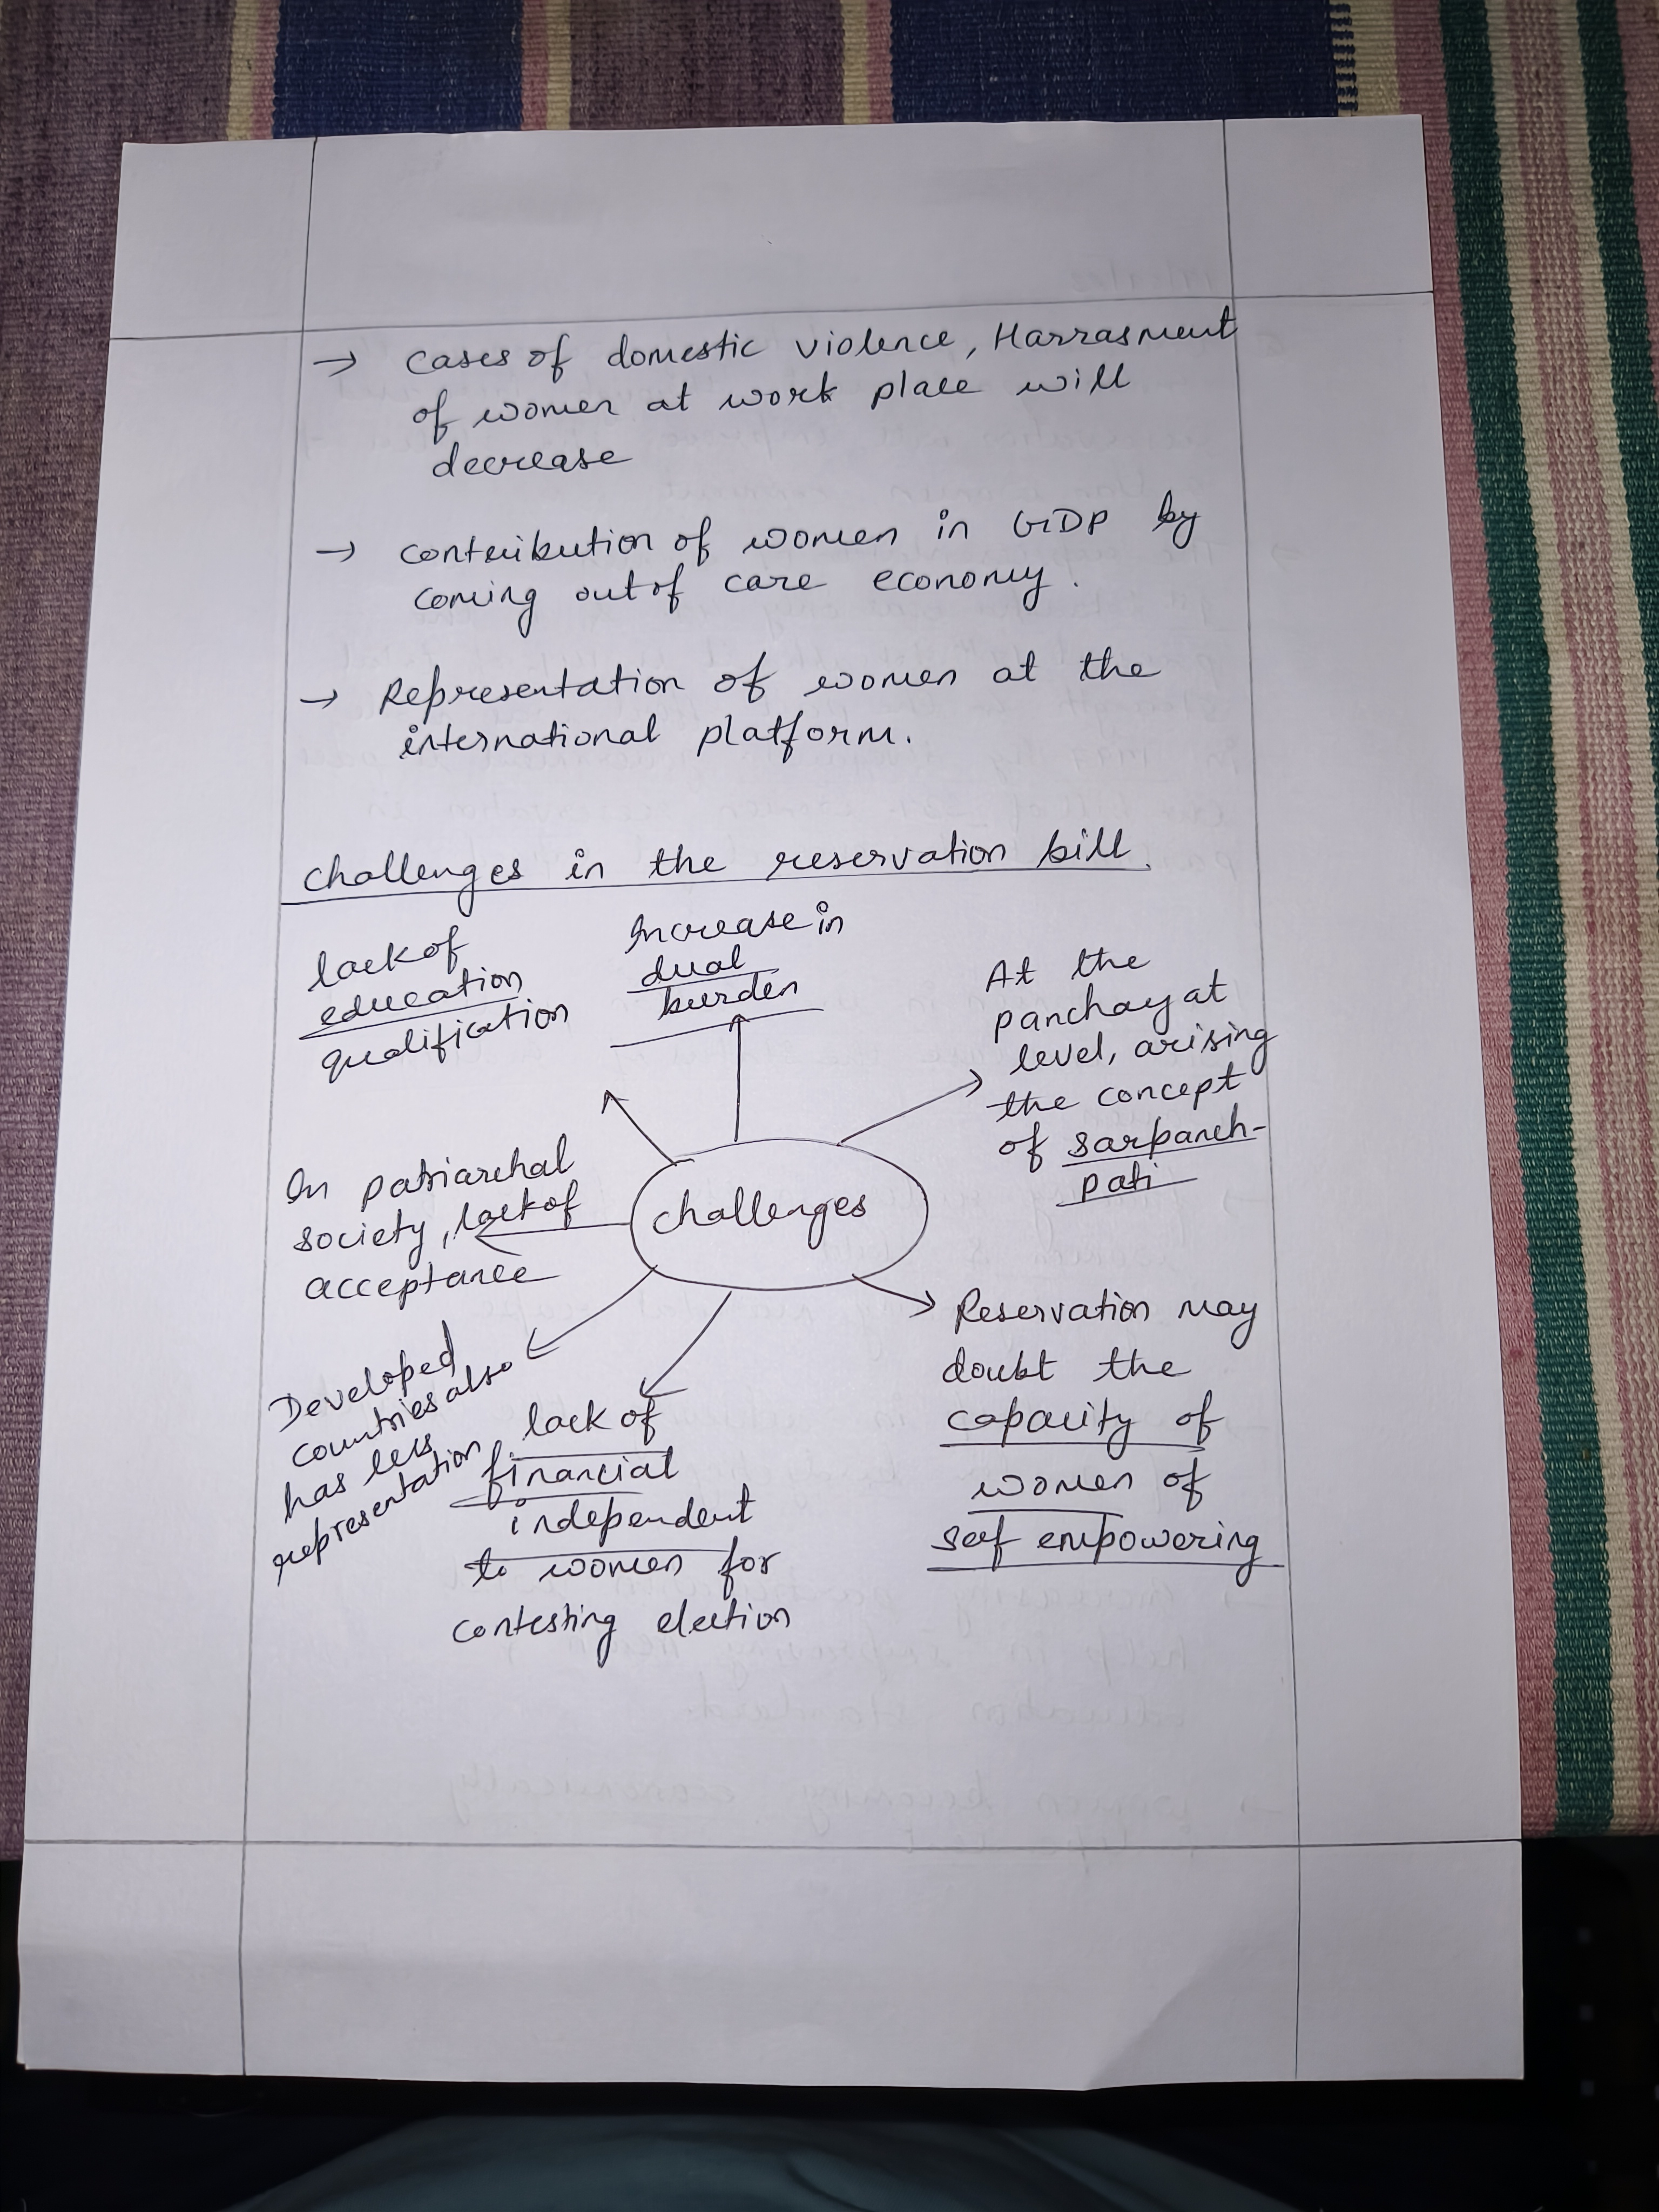 → cases of domestic violence, Harrasment
of women at work place will
decrease
→ contribution of women in GDP by
coming out of care economy.
→ Representation of women at the
international platform.
challenges in the reservation bill.
lack of
education
qualification
Increase in
dual
burden
At the
panchayat
level, arising
the concept
of sarpanch-
pati
In patriarchal
society, lack of
acceptance
challenges
Developed
countries also
has less
representation
lack of
financial
independent
to women for
contesting election
Reservation may
doubt the
capacity of
women of
self empowering